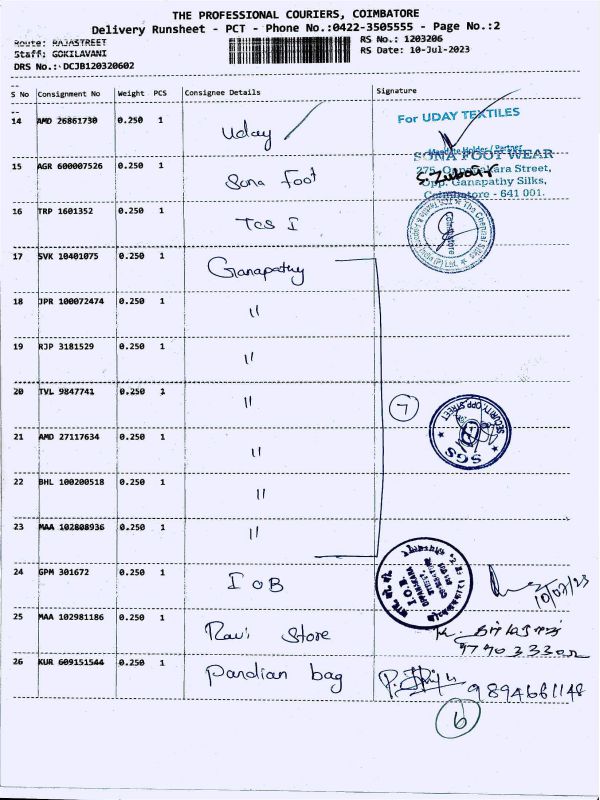 THE PROFESSIONAL COURIERS, COIMBATORE
Delivery Runsheet - PCT - Phone No.:0422-3505555 - Page No.:2
Route: RAJASTREET
RS No.: 1203206
Staff: GOKILAVANI
RS Date: 10-Jul-2023
DRS No.: DCJB120320602
S No Consignment No Weight PCS Consignee Details Signature
14 AMD 26861730 0.250 1 Uday
For UDAY TEXTILES
Mandate Holder / Partner
15 AGR 600007526 0.250 1 Sona Foot
SONA FOOT WEAR
275, Street,
Opp. Ganapathy Silks,
Coimbatore - 641 001.
16 TRP 1601352 0.250 1 TCS I
The Chennai Silks
Coimbatore
17 SVK 10401075 0.250 1 Ganapathy
18 JPR 100072474 0.250 1 "
19 RJP 3181529 0.250 1 "
20 TVL 9847741 0.250 1 "
7
21 AMD 27117634 0.250 1 "
SECURITY, OPP. STREET
SGS
22 BHL 100200518 0.250 1 "
23 MAA 102808936 0.250 1 "
24 GPM 301672 0.250 1 IOB
I.O.B.
10/07/23
25 MAA 102981186 0.250 1 Ravi Store
26 KUR 609151544 0.250 1 Pandian bag
9894661148
6